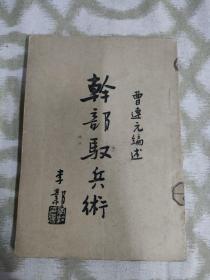 曹連元編述
幹部馭兵術
李